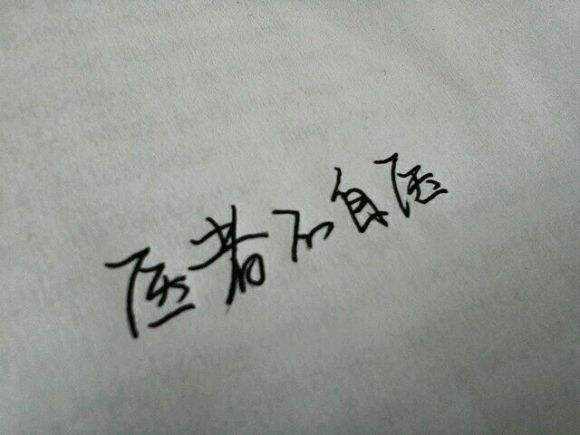 医者不自医